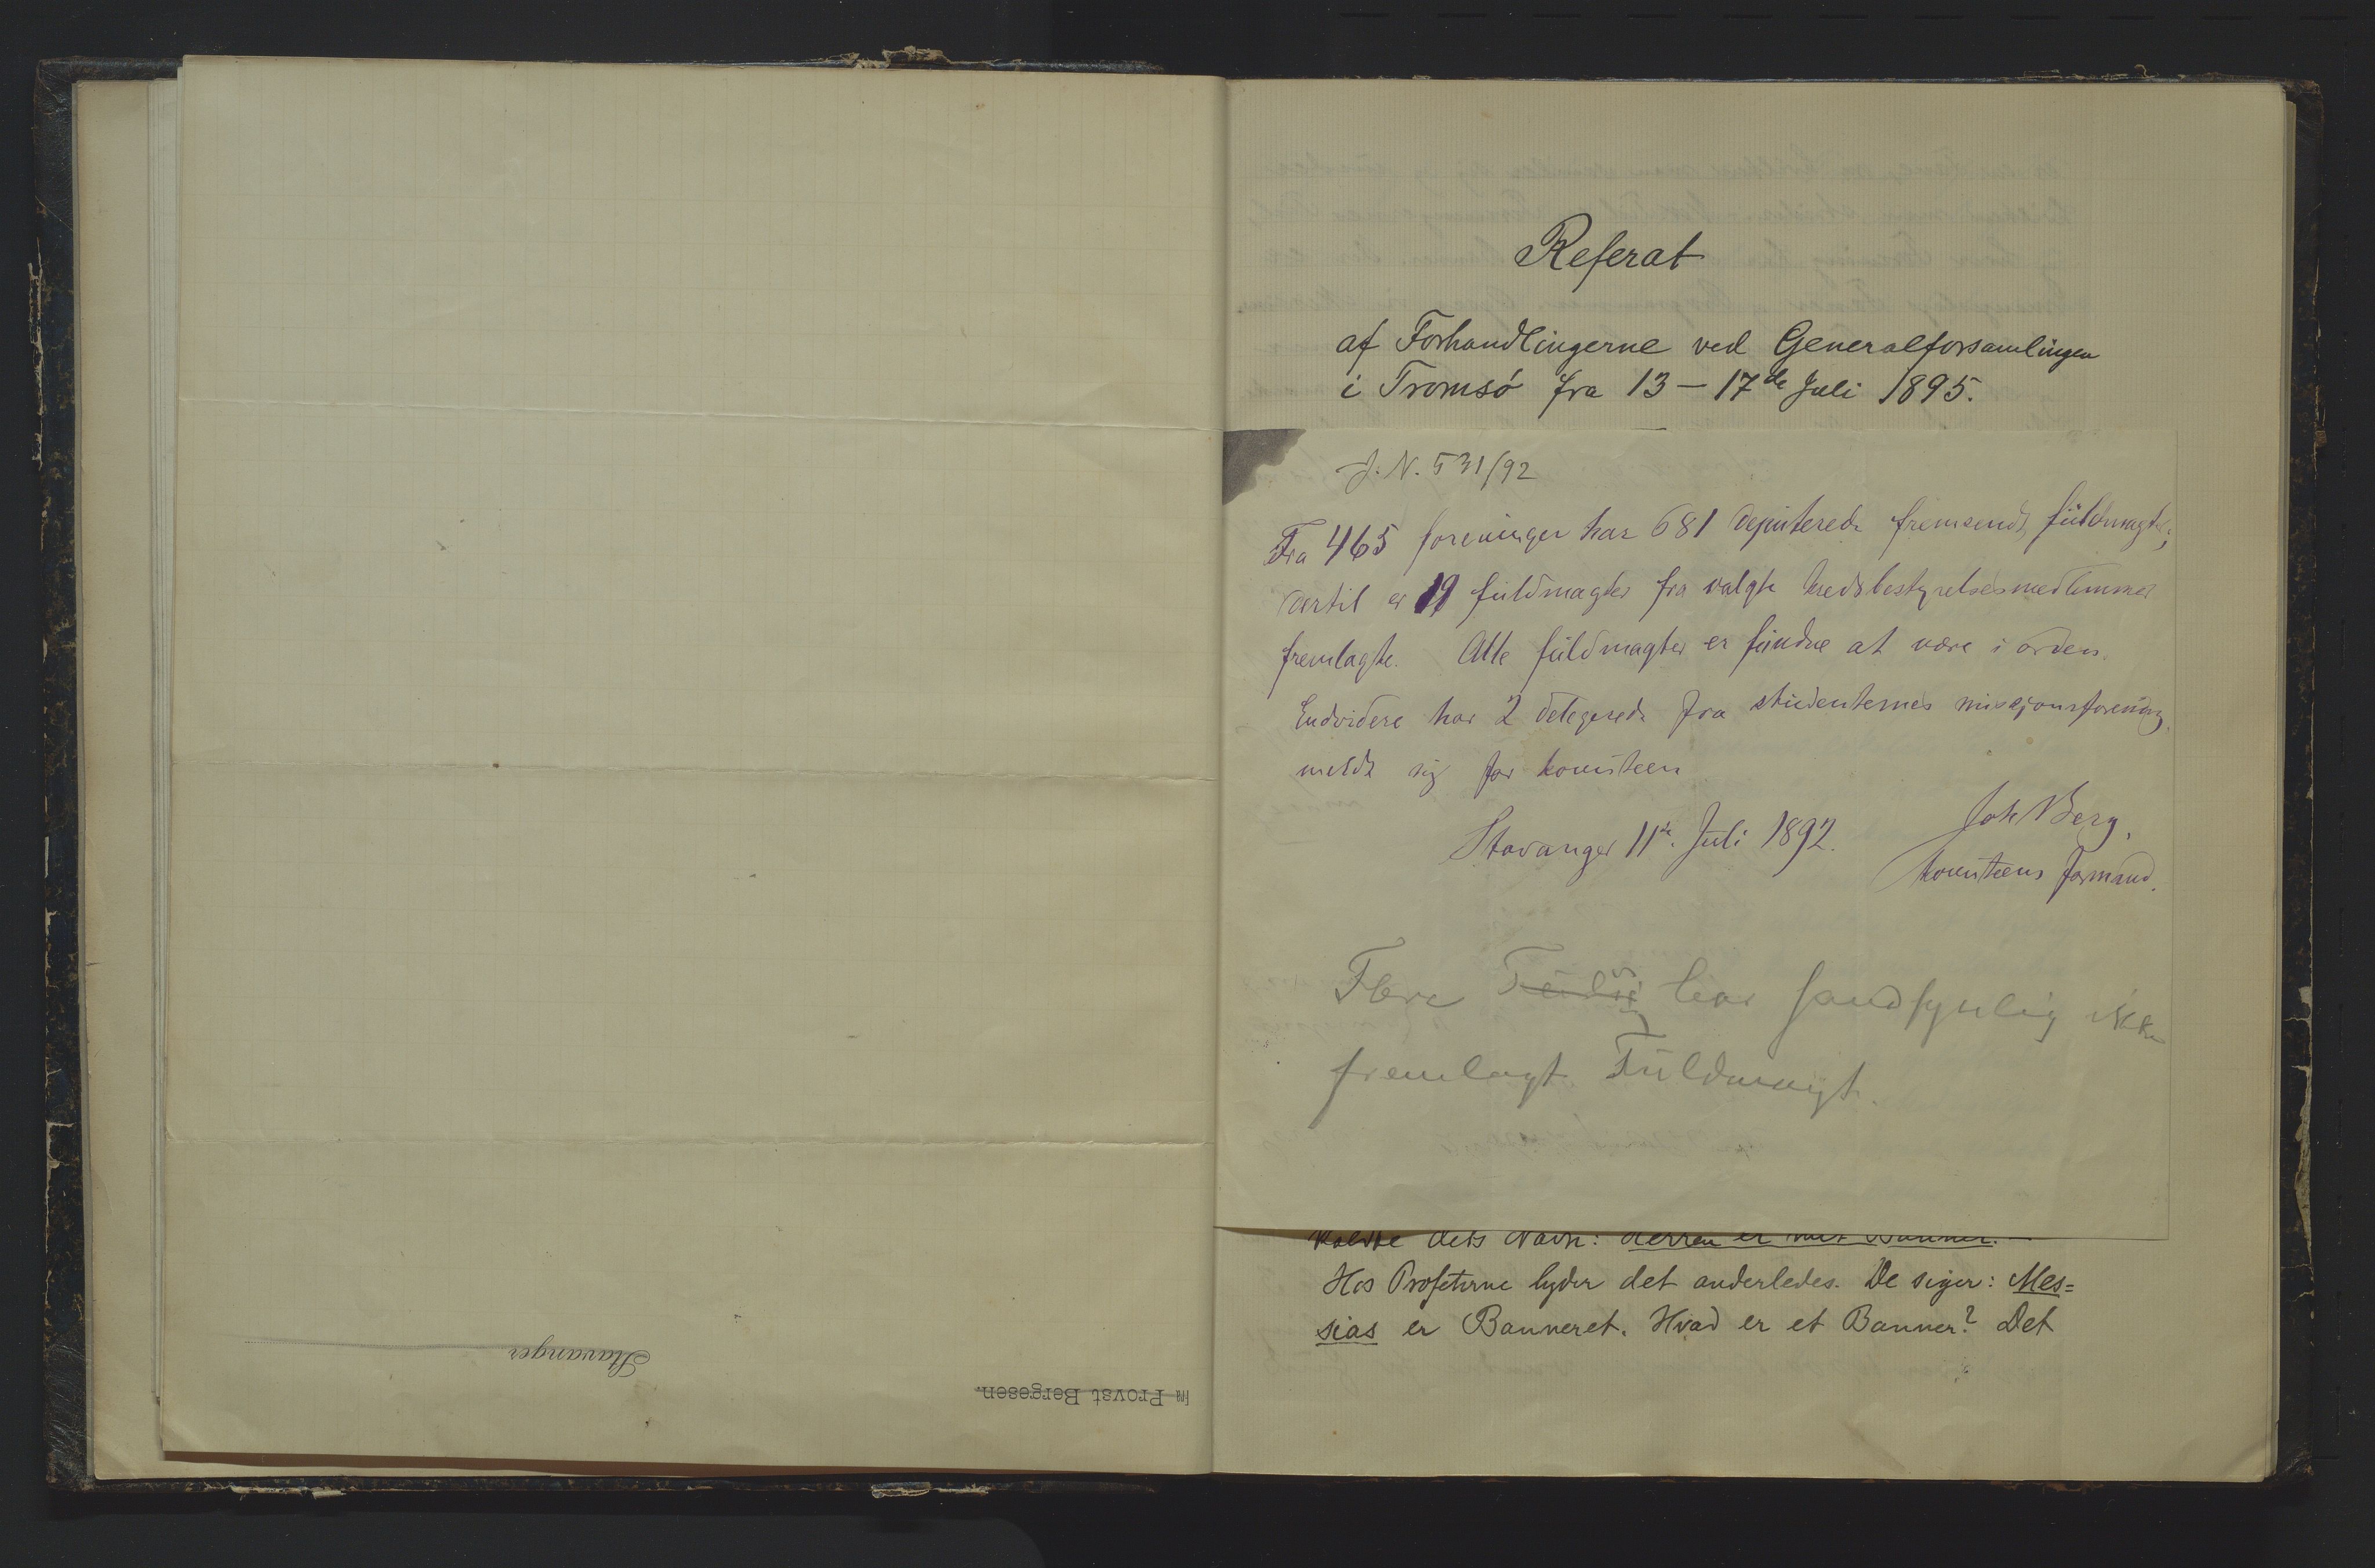 Stavanger
fra Provst Bergesen.
Referat
af Forhandlingerne ved Generalforsamlingen
i Tromsö fra 13 – 17de Juli 1895.
J. N. 531/92
Fra 465 foreninger har 681 deputerede fremsendt fuldmagter;
dertil er 19 fuldmagter fra valgte kredsbestyrelsesmedlemmer
fremlagte. Alle fuldmagter er fundne at være i orden.
Endvidere har 2 delegerede fra studenternes missjonsforening
meldt sig for komiteen
Stavanger 11te Juli 1892.
Joh Berg,
komiteens formand.
Flere har sandsynlig ikke
fremlagt Fuldmagt.
kaldte dets Navn: Herren er mit Banner. –
Hos Profeterne lyder det anderledes. De siger: Mes=
sias er Banneret. Hvad er et Banner? Det